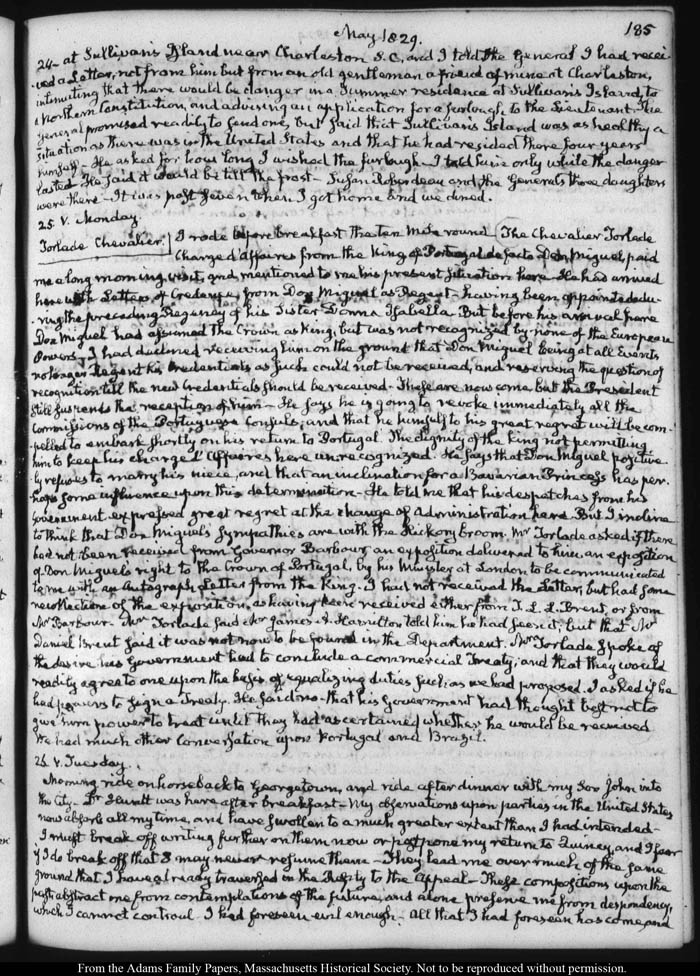 May 1829.
185
24– at Sullivan's Island near Charleston S.C. and I told the General I had recei-
ved a Letter, not from him but from an old gentleman a friend of mine at Charleston,
intimating that there would be danger in a Summer residence at Sullivan's Island, to
a Northern Constitution, and advising an application for a furlough, to the Lieutenant. The
General promised readily to send one, but said that Sullivan's Island was as healthy a
situation as there was in the United States and that he had resided there four years
himself– He asked for how long I wished the furlough– I told him only while the danger
lasted– He said it would be till the frost– Susan Roberdeau and the General's three daughters
were there– It was past seven when I got home and we dined.
25. V. Monday.
Torlade Chevalier. I rode before breakfast the ten Mile round– The Chevalier Torlade
Chargé d'affaires from the King of Portugal de facto Don Miguel, paid
me a long morning visit, and mentioned to me his present situation here– He had arrived
here with Letters of Credence from Don Miguel as Regent– having been appointed du-
ring the preceding Regency of his Sister Donna Isabella– But before his arrival here
Don Miguel had assumed the Crown as King, but was not recognized by none of the European
Powers– I had declined receiving him on the ground that Don Miguel being at all Events
no longer Regent his Credentials as such could not be received, and reserving the question of
recognition till the new Credentials should be received– These are now come, but the President
still suspends the reception of him– He says he is going to revoke immediately all the
Commissions of the Portuguese Consuls, and that he himself to his great regret will be com-
pelled to embark shortly on his return to Portugal. The dignity of the King not permitting
him to keep his chargé d'affaires here unrecognized. He says that Don Miguel positive-
ly refuses to marry his niece, and that an inclination for a Bavarian Princess has per-
haps some influence upon this determination– He told me that his despatches from his
Government expressed great regret at the change of Administration here. But I incline
to think that Don Miguel's sympathies are with the Hickory broom. Mr Torlade asked if there
had not been received from Governor Barbour an exposition delivered to him an exposition
of Don Miguel's right to the Crown of Portugal, by his Minister at London to be communicated
to me with an Autograph Letter from the King. I had not received the Letter, but had some
recollection of the exposition, as having been received either from J. L. L. Brent, or from
Mr Barbour. Mr Torlade said Mr James A. Hamilton told him he had seen it, but that Mr
Daniel Brent said it was not now to be found in the Department. Mr Torlade spoke of
the desire his Government had to conclude a commercial Treaty, and that they would
readily agree to one upon the basis of equalizing duties such as we had proposed. I asked if he
had powers to sign a Treaty. He said no– that his Government had thought best not to
give him power to treat until they had ascertained whether he would be received
We had much other Conversation upon Portugal and Brazil.
26. V. Tuesday.
Morning ride on horseback to Georgetown, and ride after dinner with my Son John into
the City– Dr Huntt was here after breakfast– My observations upon parties in the United States
now absorb all my time, and have swollen to a much greater extent than I had intended–
I must break off writing further on them now or postpone my return to Quincy, and I fear
if I do break off that I may never resume them– They lead me over much of the same
ground that I have already traversed in the Reply to the Appeal– These compositions upon the
past abstract me from contemplations of the future, and alone preserve me from despondency,
which I cannot controul– I had foreseen evil enough– All that I had foreseen has come, and
From the Adams Family Papers, Massachusetts Historical Society. Not to be reproduced without permission.